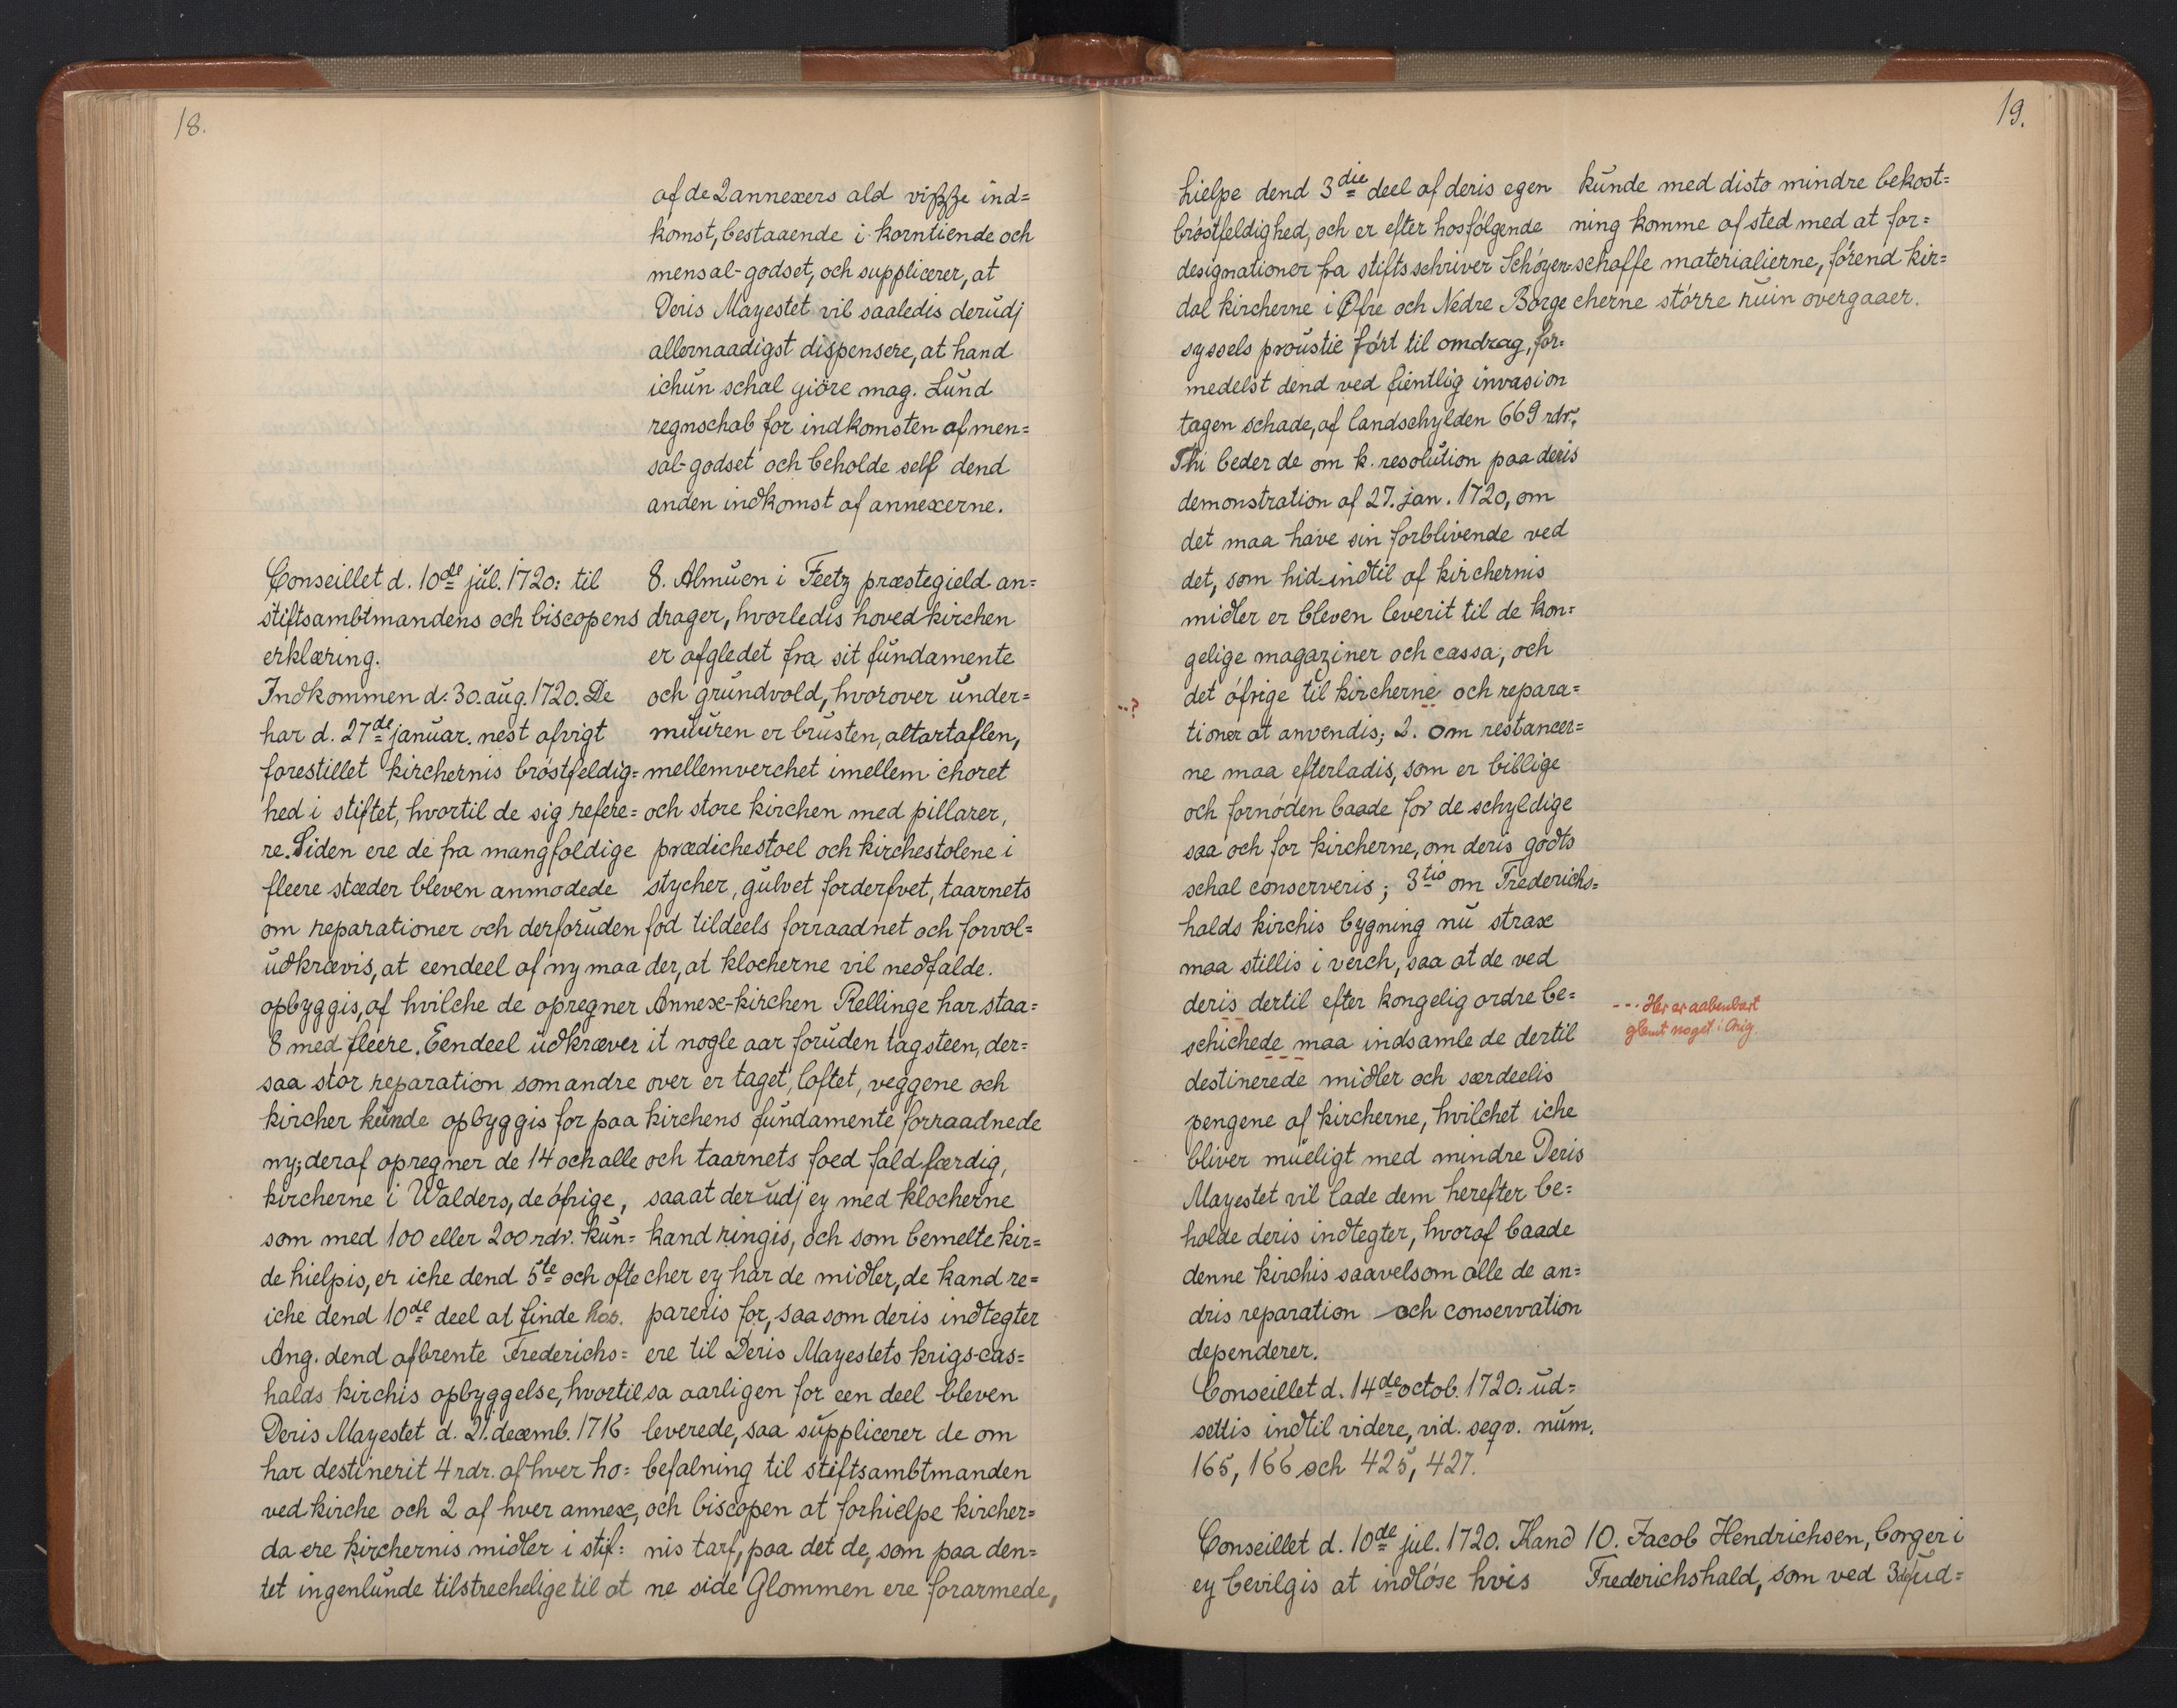 18.
af de 2 annexers ald visse ind=
komst, bestaaende i korntiende och
mensal-godset, och supplicerer, at
Deris Mayestet vil saaledis derudj
allernaadigst dispensere, at hand
ichun schal giöre mag. Lund
regnschab for indkomsten af men=
sal-godset och beholde self dend
anden indkomst af annexerne.
Conseillet d. 10de jul. 1720: til
stiftsambtmandens och biscopens
erklæring.
Indkommen d. 30. aug. 1720. De
har d. 27de januar. nest afvigt
forestillet kirchernis bröstfeldig=
hed i stiftet, hvortil de sig refere=
re. Siden ere de fra mangfoldige
fleere stæder bleven anmodede
om reparationer och derforuden
udkrævis, at eendeel af ny maa
opbyggis, af hvilche de opregner
8 med fleere. Eendeel udkræver
saa stor reparation som andre
kircher kunde opbyggis for paa
ny; deraf opregner de 14 och alle
kircherne i Walders, de öfrige,
som med 100 eller 200 rdr. kun=
de hielpis, er iche dend 5te och ofte
iche dend 10de deel at finde hos.
Ang. dend afbrente Frederichs=
halds kirchis opbyggelse, hvortil
Deris Mayestet d. 21. decemb. 1716
har destinerit 4 rdr. af hver ho=
ved kirche och 2 af hver annex,
da ere kirchernis midler i stif=
tet ingenlunde tilstrechelige til at
8. Almuen i Feetz præstegield an=
drager, hvorledis hoved kirchen
er afgledet fra sit fundamente
och grundvold, hvorover under=
muuren er brusten, altartaflen,
mellemverchet imellem choret
och store kirchen med pillarer,
prædichestoel och kirchestolene i
stycher, gulvet forderfvet, taarnets
fod tildeels forraadnet och forvol=
der, at klocherne vil nedfalde.
Annex-kirchen Rellinge har staa=
it nogle aar foruden tagsteen, der=
over er taget, loftet, veggene och
kirchens fundamente forraadnede
och taarnets foed faldfærdig,
saa at der udj ey med klocherne
kand ringis, och som bemelte kir=
cher ey har de midler, de kand re=
pareris for, saasom deris indtegter
ere til Deris Mayestets krigs-cas=
sa aarligen for een deel bleven
leverede, saa supplicerer de om
befalning til stiftsambtmanden
och biscopen at forhielpe kircher=
nis tarf, paa det de, som paa den=
ne side Glommen ere forarmede,
19.
hielpe dend 3die deel af deris egen
bröstfeldighed, och er efter hosfölgende
designationer fra stiftsschriver Schöyen=
dal kircherne i Öfre och Nedre Borge
syssels proustie fört til omdrag, for=
medelst dend ved fientlig invasion
tagen schade, af landschylden 669 rdr.
Thi beder de om k. resolution paa deris
demonstration af 27. jan. 1720, om
det maa have sin forblivende ved
det, som hid-indtil af kirchernis
midler er bleven leverit til de kon=
gelige magaziner och cassa, och
--? det öfrige til kircherne och repara=
tioner at anvendis; 2. om restancer=
ne maa efterladis, som er billige
och fornöden baade for de schyldige
saa och for kircherne, om deris godts
schal conserveris; 3tio om Frederichs=
halds kirchis bygning nu strax
maa stillis i verch, saa at de ved
deris dertil efter kongelig ordre be=
schichede maa indsamle de dertil
destinerede midler och særdeelis
pengene af kircherne, hvilchet iche
bliver mueligt med mindre Deris
Mayestet vil lade dem herefter be=
holde deris indtegter, hvoraf baade
denne kirchis saavelsom alle de an=
dris reparation och conservation
dependerer.
Conseillet d. 14de octob. 1720: ud=
settis indtil videre, vid. seqv. num.
165, 166 och 425, 427.
kunde med disto mindre bekost=
ning komme af sted med at for=
schaffe materialierne, förend kir=
cherne större ruin overgaaer.
--- Her er aabenbart
glemt noget i Orig.
Conseillet d. 10de jul. 1720. Kand
ey bevilgis at indlöse hvis
10. Jacob Hendrichsen, borger i
Frederichshald, som ved 3de ud=